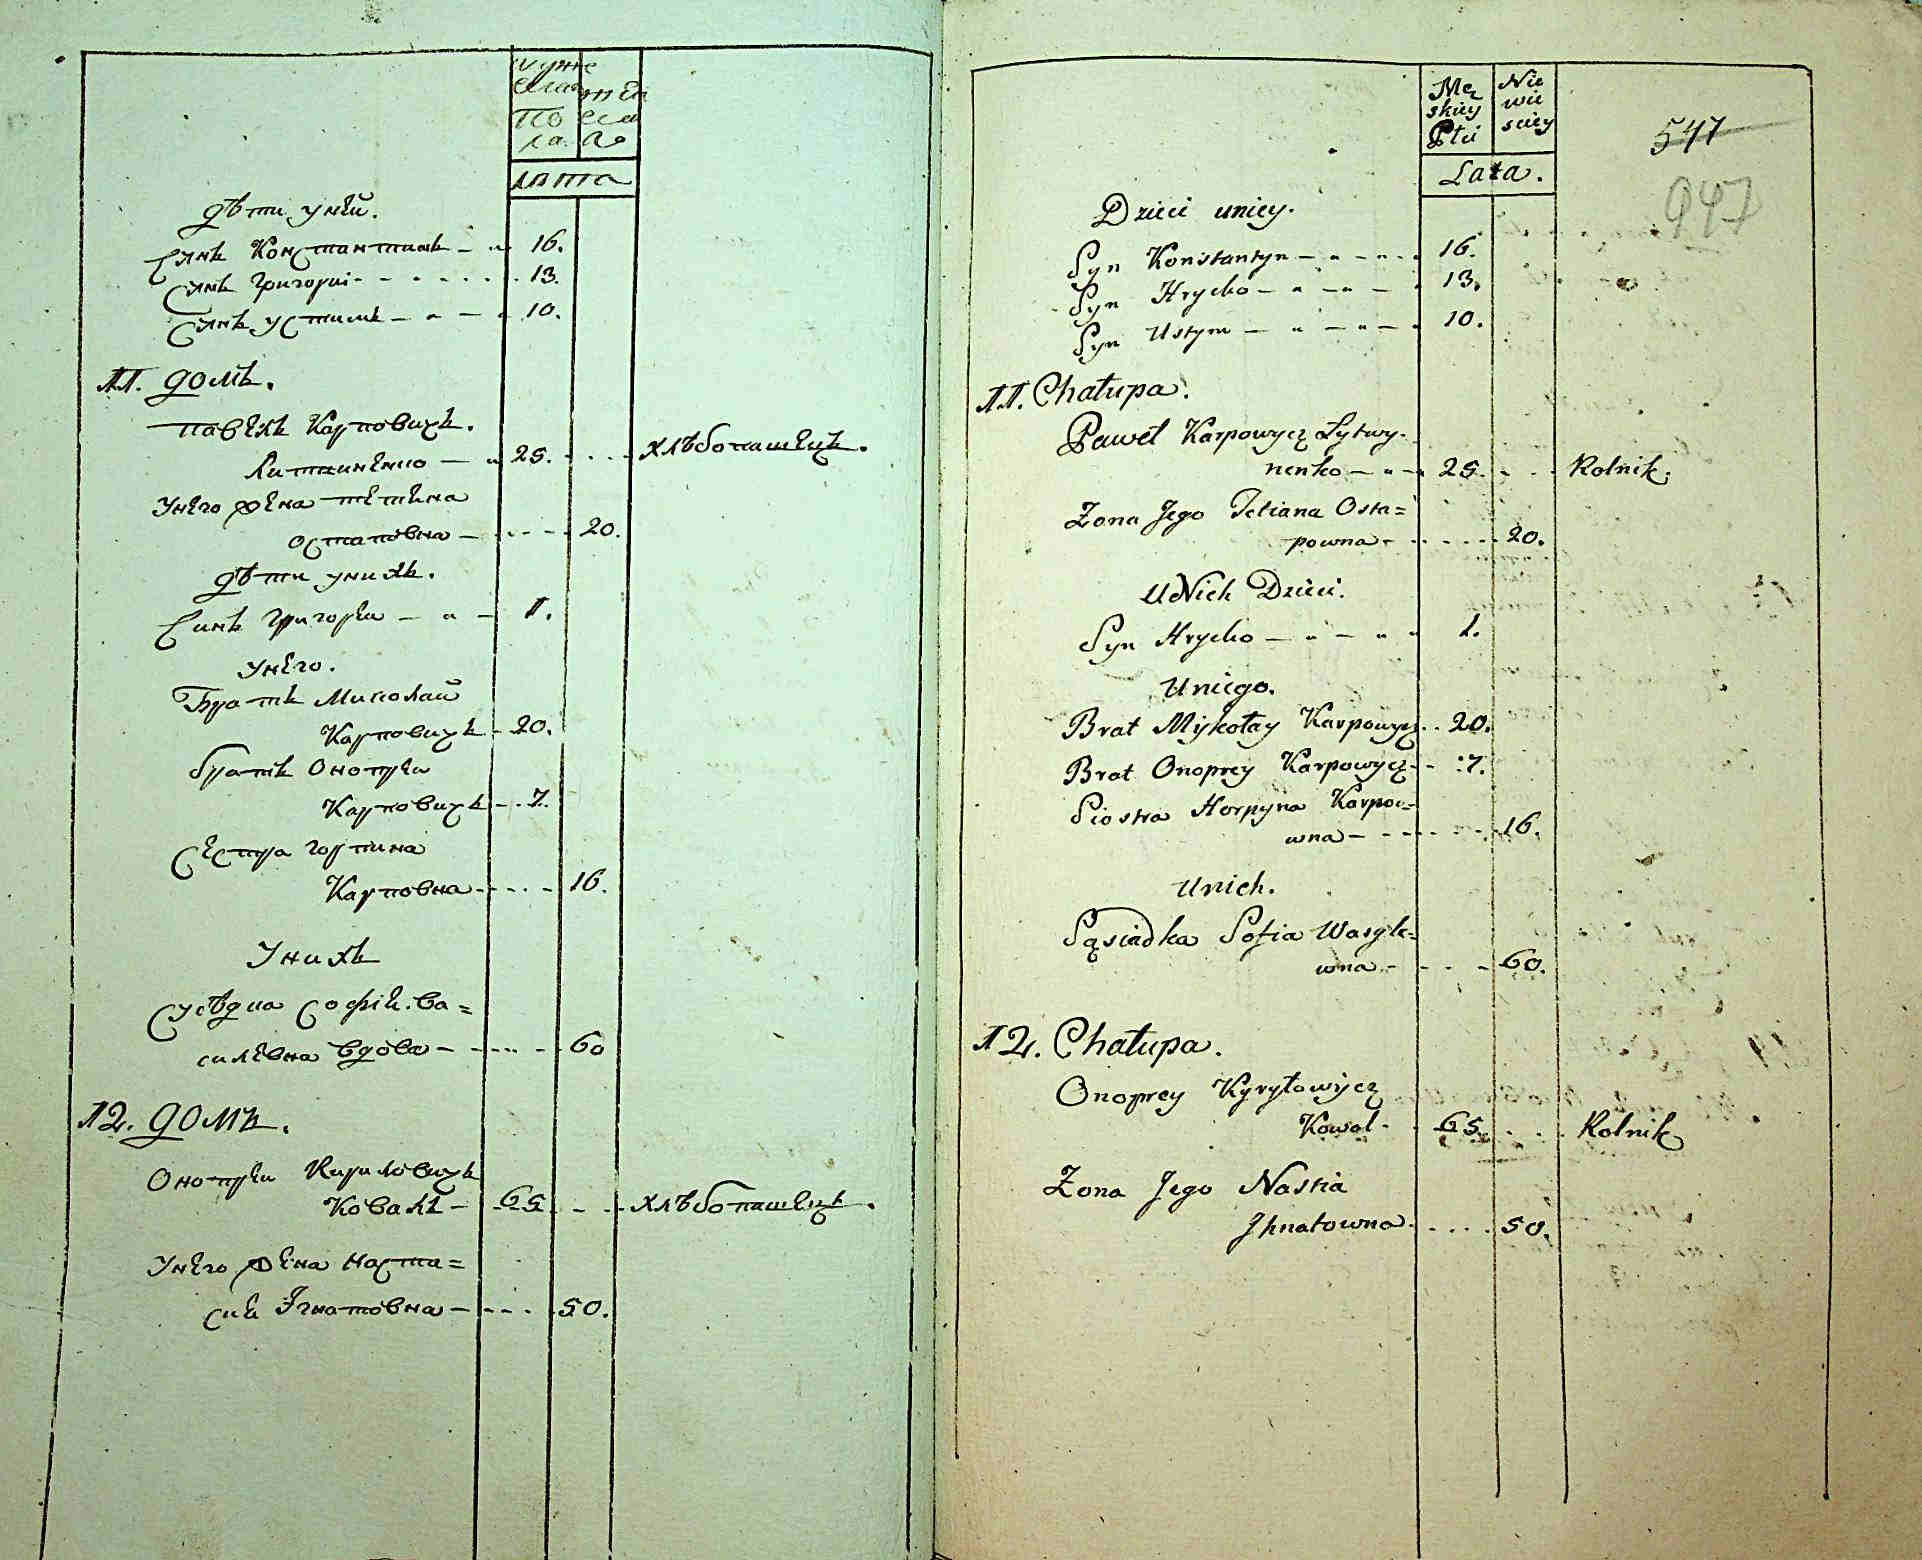 муже
ска женъ
по ска
ла го
лѣта
дѣти уней.
Сынъ Константинъ — „ 16.
Сынъ Григорій - - - - - - 13.
Сынъ устимъ — „ — „ 10.
11. домъ.
павелъ Карповичъ.
Литвиненко — „ 25. - - - хлѣбопашецъ.
унего жена тетяна
остаповна — - - - - 20.
дѣти унихъ.
Синъ григорей — „ — 1.
унего.
Братъ Миколай
Карповичъ - 20.
братъ Онопрей
Карповичъ - - 7.
Сестра горпина
Карповна - - - - - 16.
Унихъ
Сусѣдка Софія. Ва=
силевна вдова — - - - - 60
12. домъ.
Онопрей Кириловичъ
Коваль — - 65 - - - хлѣбопашецъ.
унего жена Наста=
сия Игнатовна — - - - 50.
Mę
skiey
Płci
Nie
wie
sciey
Lata.
547
947
Dzieci uniey.
Syn Konstantyn — „ — - - 16.
Syn Hryćko — „ — „ — 13.
Syn Ustym — „ — „ — 10.
11. Chałupa.
Paweł Karpowycz Lytwy-
nenko — „ — 25. - - Rolnik.
Zona Jego Tetiana Osta=
powna - - - - - - 20.
UNich Dzieci.
Syn Hryćko — „ — „ „ 1.
Uniego.
Brat Mykołay Karpowycz - - 20.
Brat Onoprey Karpowycz - - 7.
Siostra Horpyna Karpo=
wna — - - - - - 16.
Unich.
Sąsiadka Sofia Wasyle=
wna - - - - 60.
12. Chałupa.
Onoprey Kyryłowycz
Kowal - - 65. - - - Rolnik
Zona Jego Nastia
Jhnatowna - - - - 50.